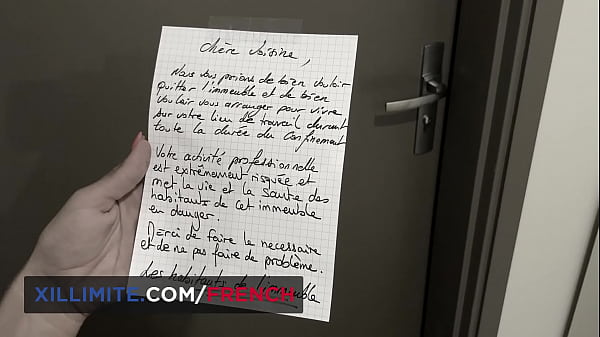 Chère Voisine,
Nous vous prions de bien vouloir
quitter l'immeuble et de bien
vouloir vous arranger pour vivre
sur votre lieu de travail durant
toute la durée du confinement
Votre activité professionnelle
est extrêmement risquée et
met la vie et la santé des
habitants de cet immeuble
en danger.
Merci de faire le necessaire
et de ne pas faire de problème.
Les habitants de l'immeuble
XILLIMITE.COM/FRENCH